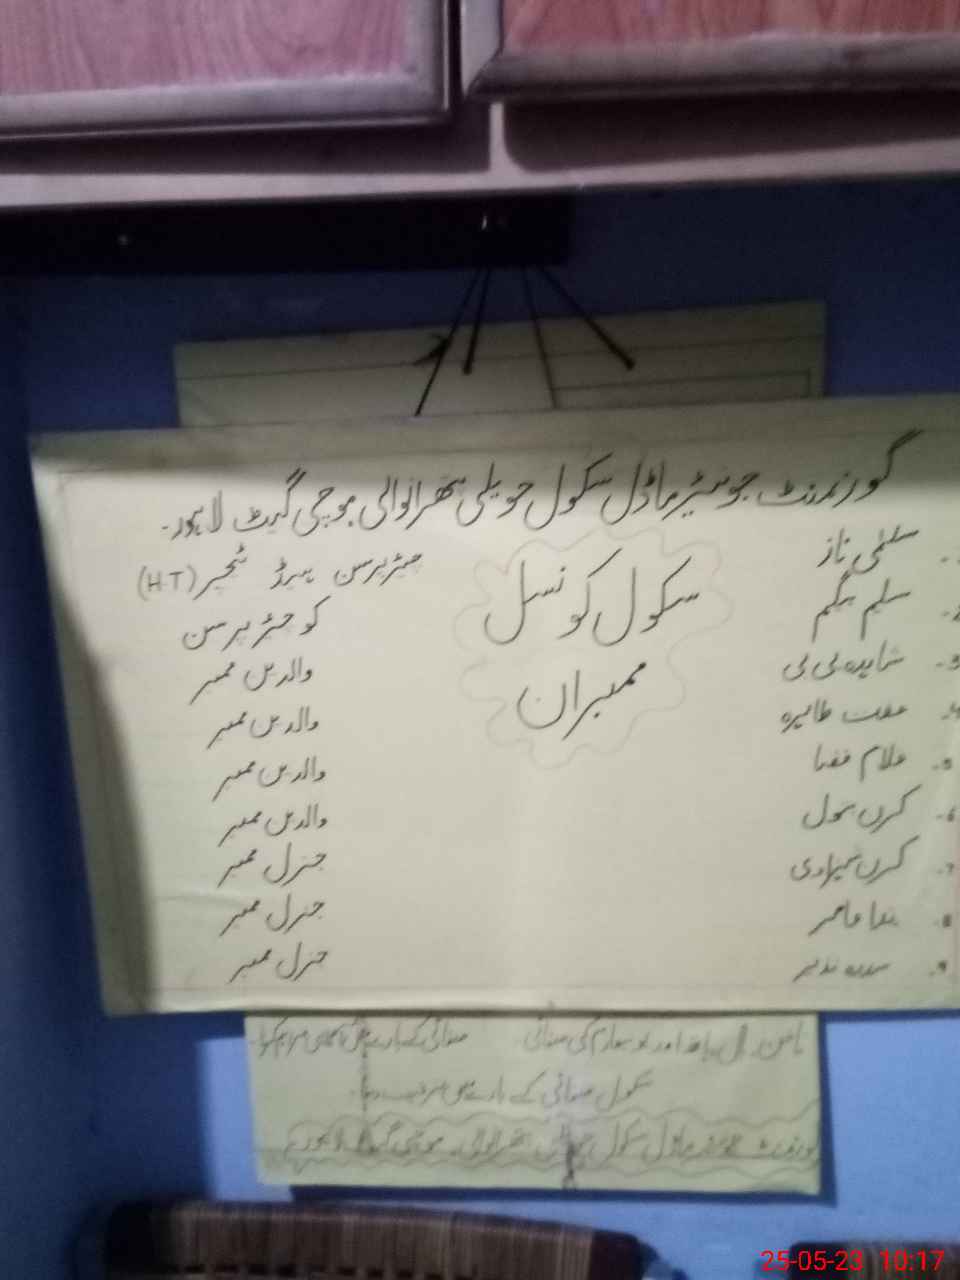 گورنمنٹ جونیئر ماڈل سکول حویلی پتھرانوالی موچی گیٹ لاہور۔
سکول کونسل
ممبران
سلمٰی ناز چیئرپرسن ہیڈ ٹیچر (H-T)
2. سلیم بیگم کو چیئرپرسن
3. شاہدہ بی بی والدین ممبر
4. عفت طاہرہ والدین ممبر
5. غلام فضا والدین ممبر
6. کرن بتول والدین ممبر
7. کرن شہزادی جنرل ممبر
8. ندا عامر جنرل ممبر
9. نذیر جنرل ممبر
صفائی کے بارے میں
سکول صفائی کے بارے میں
گورنمنٹ جونیئر ماڈل سکول حویلی پتھرانوالی موچی گیٹ لاہور
25-05-23 10:17